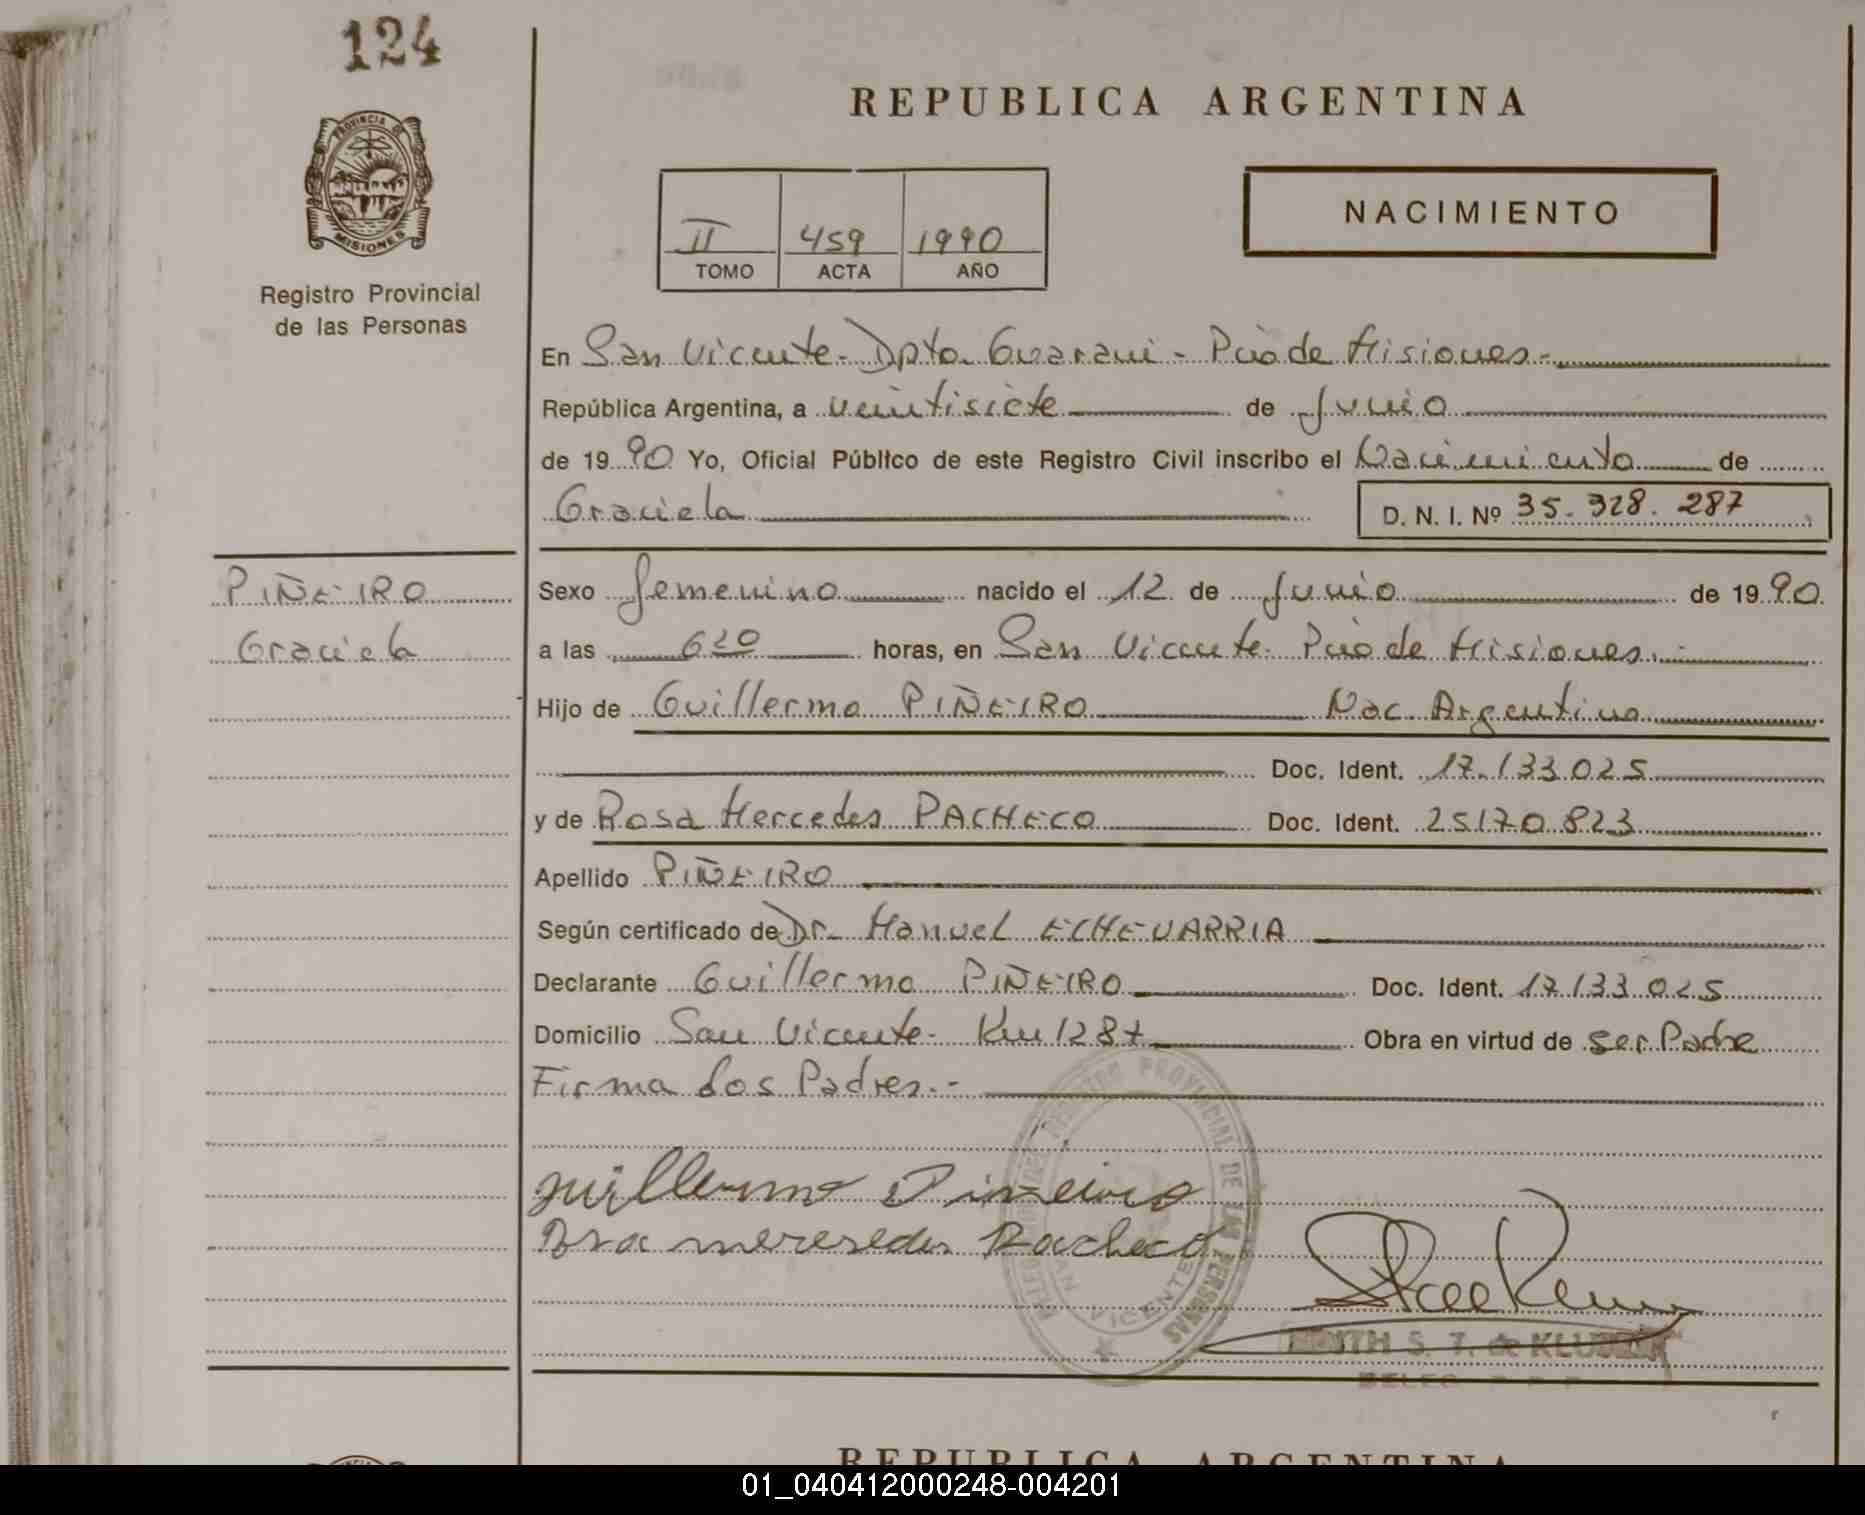 124
REPUBLICA ARGENTINA
PROVINCIA DE
MISIONES
NACIMIENTO
II 459 1990
TOMO ACTA AÑO
Registro Provincial
de las Personas
En San Vicente - Dpto. Guarani - Pcia de Misiones.-
República Argentina, a veintisiete de Junio
de 1990 Yo, Oficial Público de este Registro Civil inscribo el Nacimiento de
Graciela D. N. I. Nº 35.328.287
PIÑEIRO
Graciela
Sexo femenino nacido el 12 de Junio de 1990
a las 6 20 horas, en San Vicente Pcia de Misiones.-
Hijo de Guillermo PIÑEIRO Nac. Argentino
Doc. Ident. 17.133.025
y de Rosa Mercedes PACHECO Doc. Ident. 25170.823
Apellido PIÑEIRO
Según certificado de Dr. Manuel ECHEVARRIA
Declarante Guillermo PIÑEIRO Doc. Ident. 17133.025
Domicilio San Vicente - Km 1287 Obra en virtud de ser Padre
Firma los Padres.-
guillermo Piñeiro
Rosa mercedes Pacheco
REGISTRO PROVINCIAL DE LAS PERSONAS
SAN VICENTE
S. T. de
REPUBLICA ARGENTINA
01_040412000248-004201